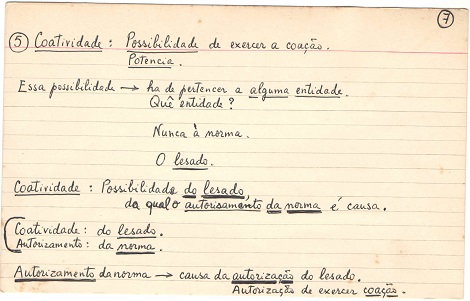 7
5 Coatividade : Possibilidade de exercer a coação.
Potencia.
Essa possibilidade → ha de pertencer a alguma entidade.
Quê entidade ?
Nunca à norma.
O lesado.
Coatividade : Possibilidade do lesado,
da qual o autorisamento da norma é causa.
Coatividade : do lesado.
Autorizamento : da norma.
Autorizamento da norma → causa da autorização do lesado.
Autorização de exercer coação.